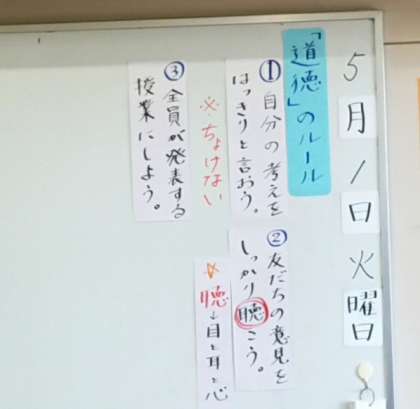 5月1日火曜日
「道徳」のルール
①自分の考えを
はっきりと言おう。
※ちょけない
②友だちの意見を
しっかり聴こう。
☆聴→目と耳と心
③全員が発表する
授業にしよう。